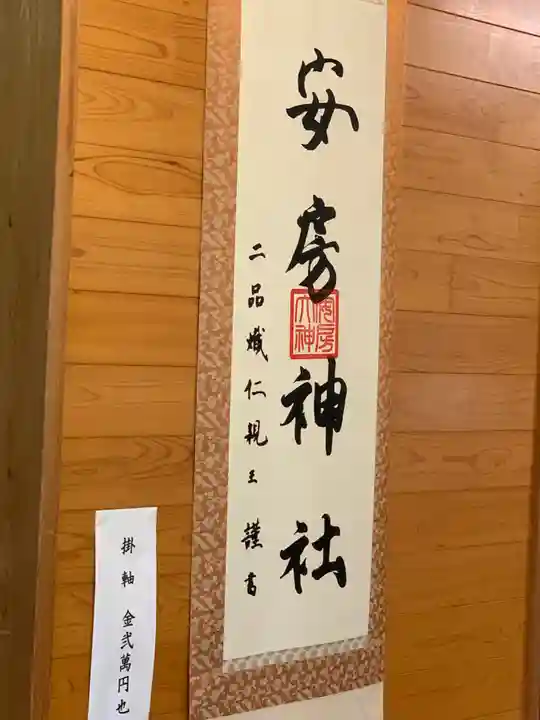 安房神社
安房
大神
二品熾仁親王 謹書
掛軸 金弐萬円也